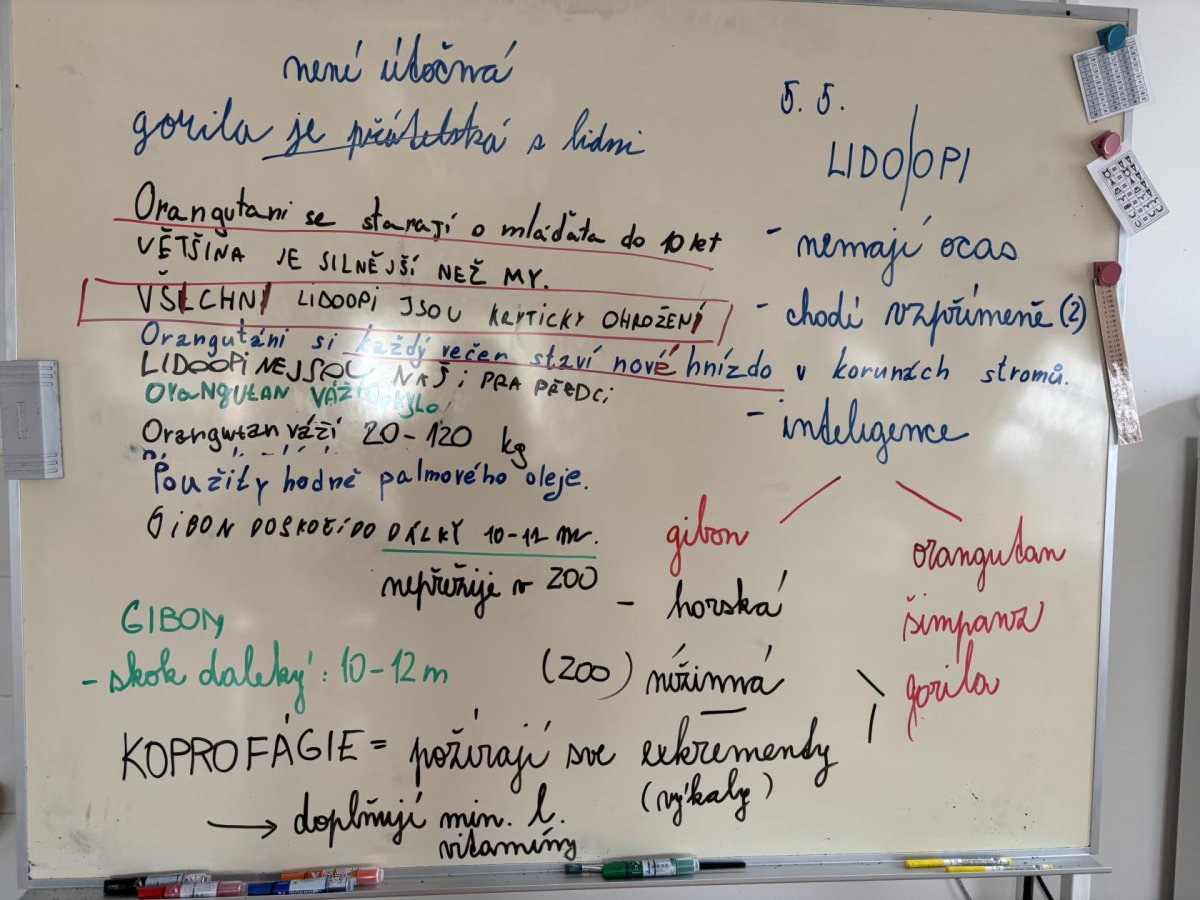 není útočná
gorila je přátelská s lidmi
Orangutani se starají o mláďata do 10 let
VĚTŠINA JE SILNĚJŠÍ NEŽ MY.
VŠICHNI LIDOOPI JSOU KRYTICKY OHROŽENÍ
Orangutáni si každý večer staví nové hnízdo v korunách stromů.
LIDOOPI NEJSOU NAŠI PRA PŘEDCI
ORANGUTAN VÁŽÍ KYLO
Orangutan váží 20-120 kg
Použity hodně palmového oleje.
GIBON DOSKOČÍ DO DÁLKY 10-12 m.
nepřežije v ZOO
GIBON
- skok daleký: 10-12 m
KOPROFÁGIE = požírají sve exkrementy
(výkaly)
→ doplňují min. l.
vitamíny
5. 5.
LIDO/OPI
- nemají ocas
- chodí vzpřímeně (2)
- inteligence
gibon
orangutan
šimpanz
gorila
- horská
(ZOO) nížinná